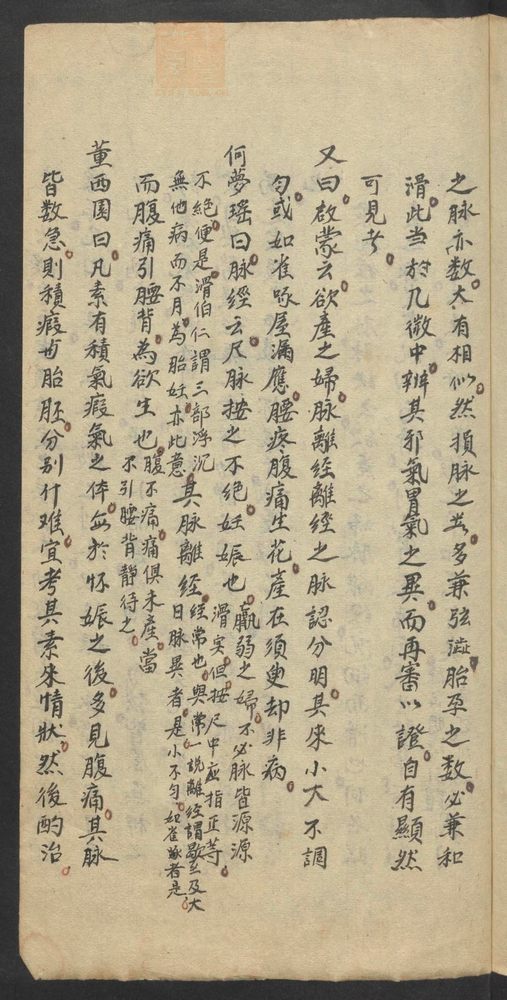 之脉亦数大有相似然損脉之数多兼弦澁胎孕之数必兼和
滑此当於几微中辨其邪氣胃氣之異而再審以證自有顯然
可見者
又曰啟蒙云欲產之婦脉離經離經之脉認分明其来小大不調
匀或如雀啄屋漏應腰疼腹痛生花產在須臾却非病
何夢瑤曰脉經云尺脉按之不絕妊娠也
羸弱之婦不必脉皆源源
滑实但按尺中應指正等
不絕便是滑伯仁謂三部浮沉
無他病而不月為胎妊亦此意
其脉離經
經常也與常一說離經謂歇至及大
日脉異者是小不匀如雀啄者是
而腹痛引腰背為欲生也
腹不痛痛俱未產當
不引腰背靜待之
董西園曰凡素有積氣瘕氣之体每於怀娠之後多見腹痛其脉
皆数急則積瘕与胎胚分别什难宜考其素来情狀然後酌治